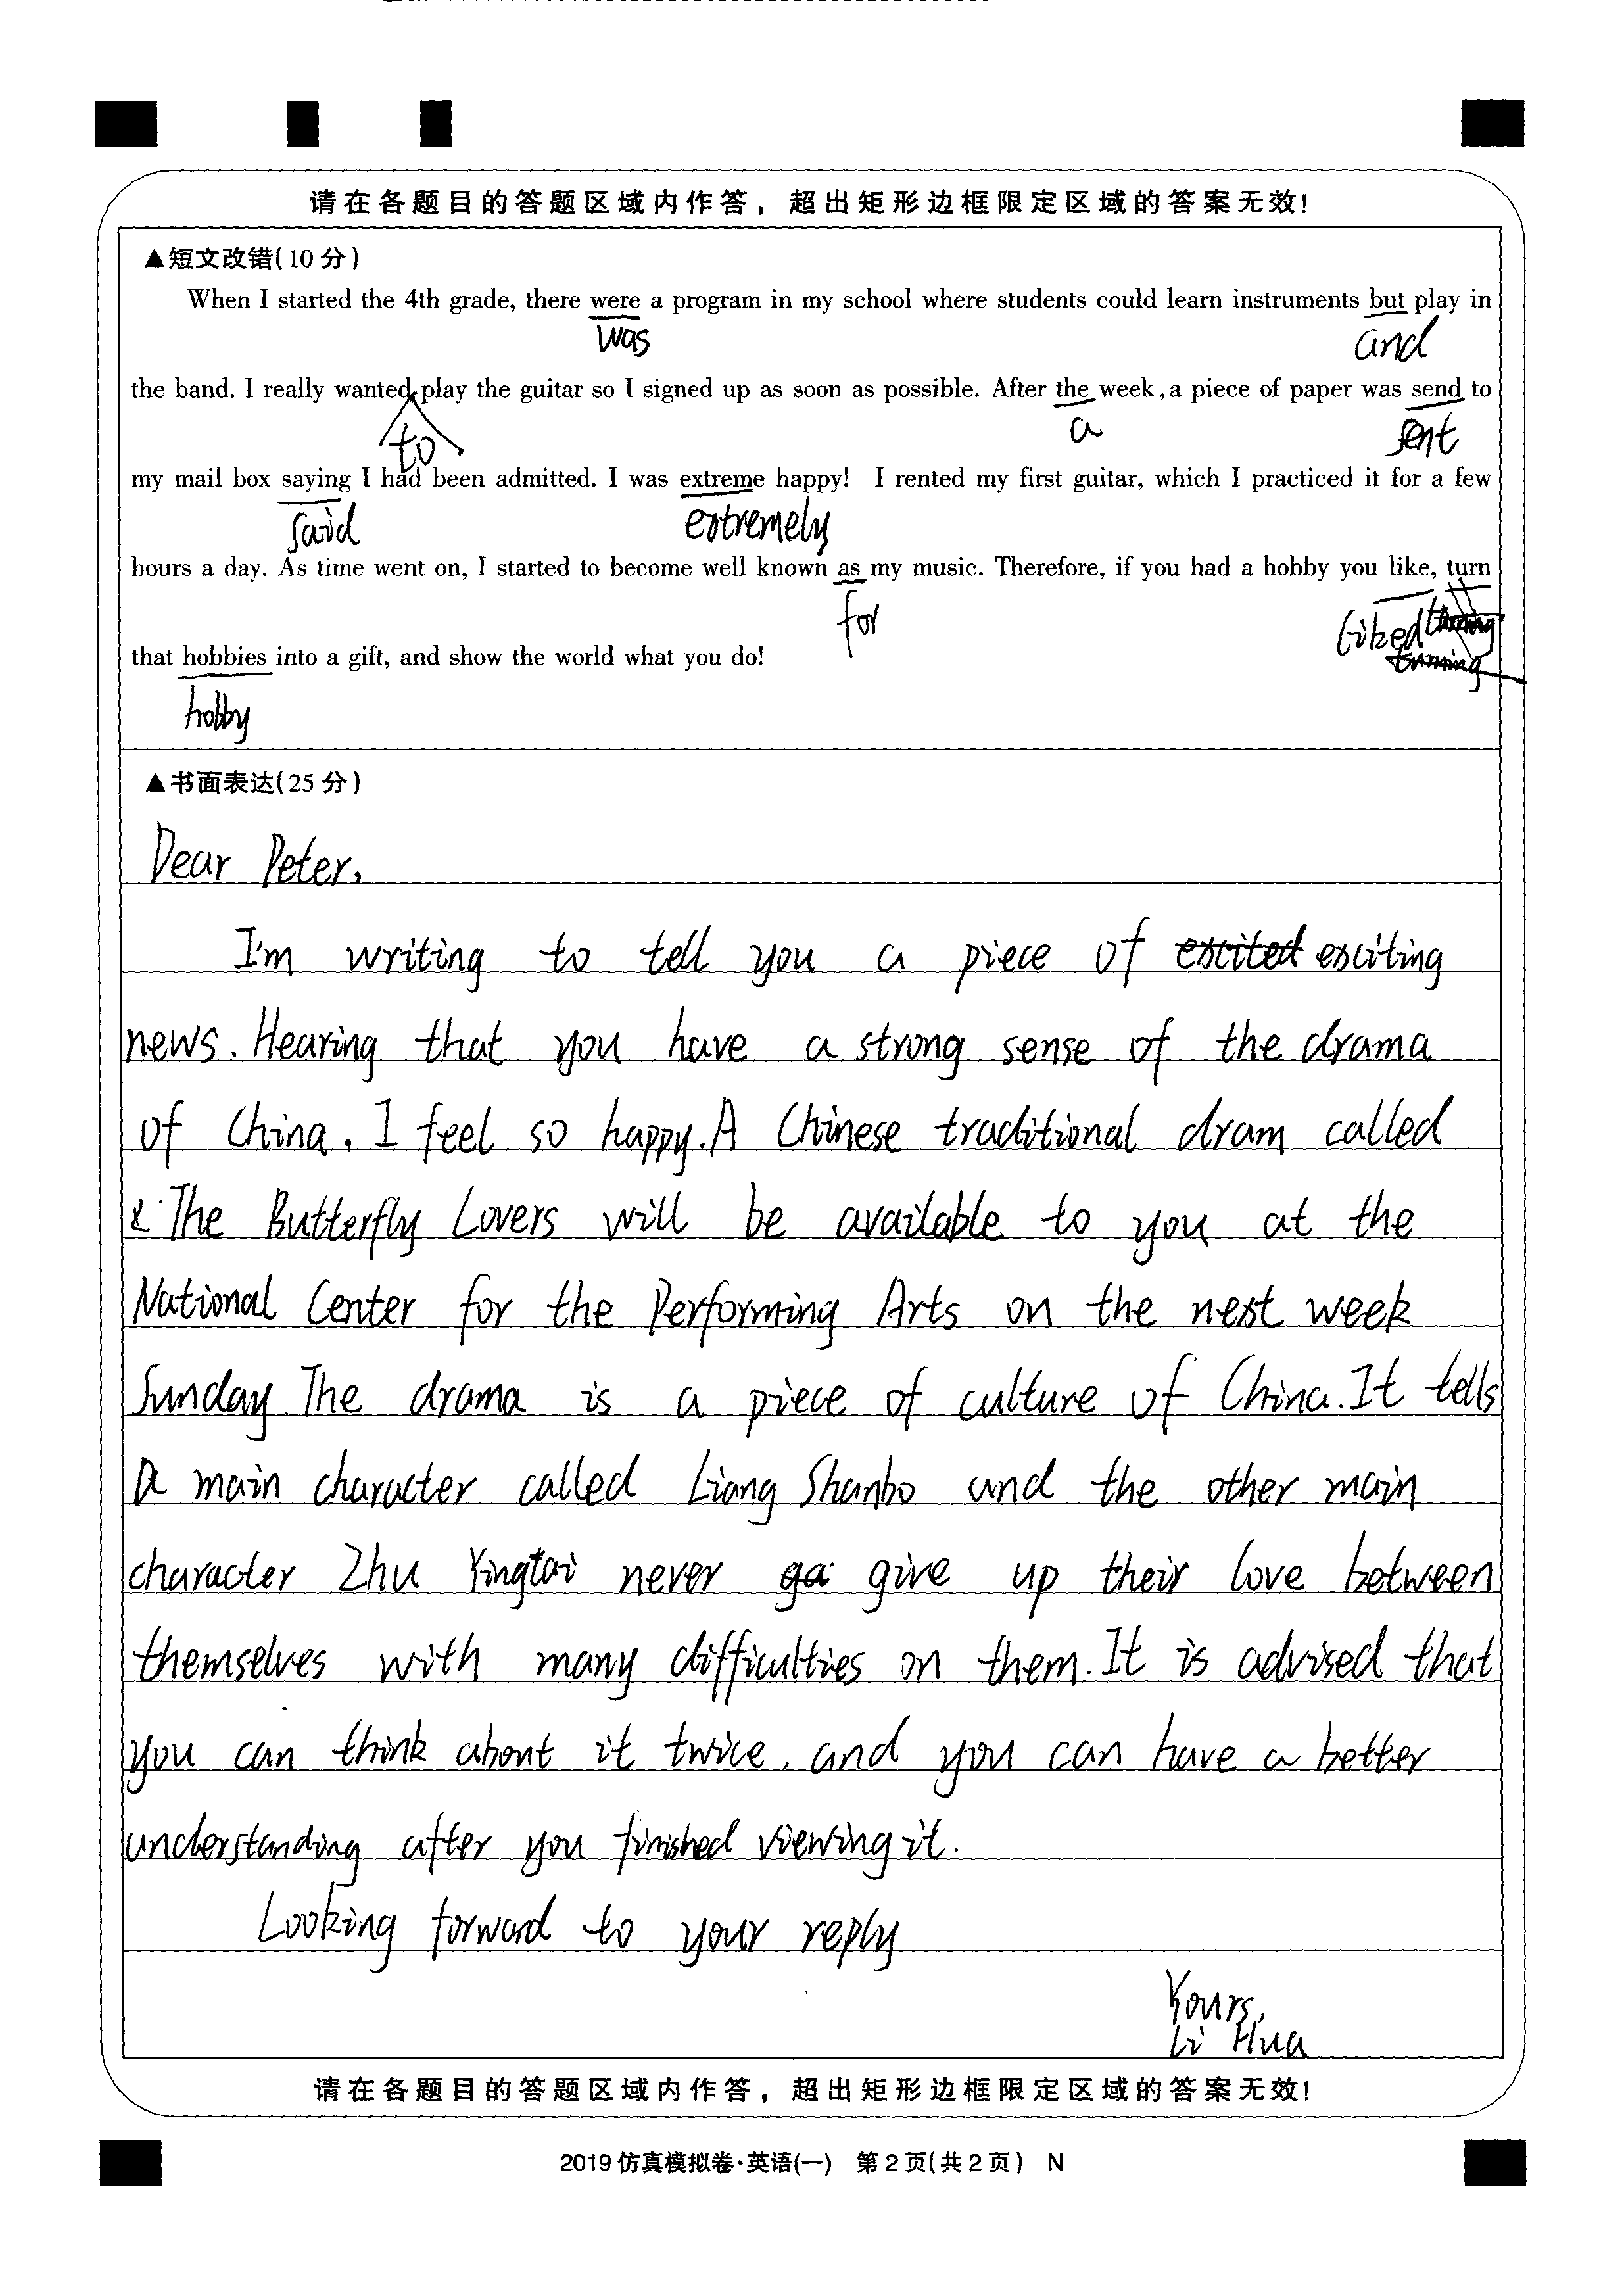 请在各题目的答题区域内作答，超出矩形边框限定区域的答案无效!
▲短文改错(10分)
When I started the 4th grade, there were a program in my school where students could learn instruments but play in
was and
the band. I really wanted play the guitar so I signed up as soon as possible. After the week, a piece of paper was send to
to a sent
my mail box saying I had been admitted. I was extreme happy! I rented my first guitar, which I practiced it for a few
said extremely
hours a day. As time went on, I started to become well known as my music. Therefore, if you had a hobby you like, turn
for liked turning
turning
that hobbies into a gift, and show the world what you do!
hobby
▲书面表达(25分)
Dear Peter,
I'm writing to tell you a piece of excited exciting
news. Hearing that you have a strong sense of the drama
of China, I feel so happy. A Chinese traditional dram called
The Butterfly Lovers will be available to you at the
National Center for the Performing Arts on the next week
Sunday. The drama is a piece of culture of China. It tells
a main character called Liang Shanbo and the other main
character Zhu Yingtai never ga give up their love between
themselves with many difficulties on them. It is advised that
you can think about it twice, and you can have a better
understanding after you finished viewing it.
Looking forward to your reply
Yours,
Li Hua
请在各题目的答题区域内作答，超出矩形边框限定区域的答案无效!
2019仿真模拟卷·英语(一) 第2页(共2页) N